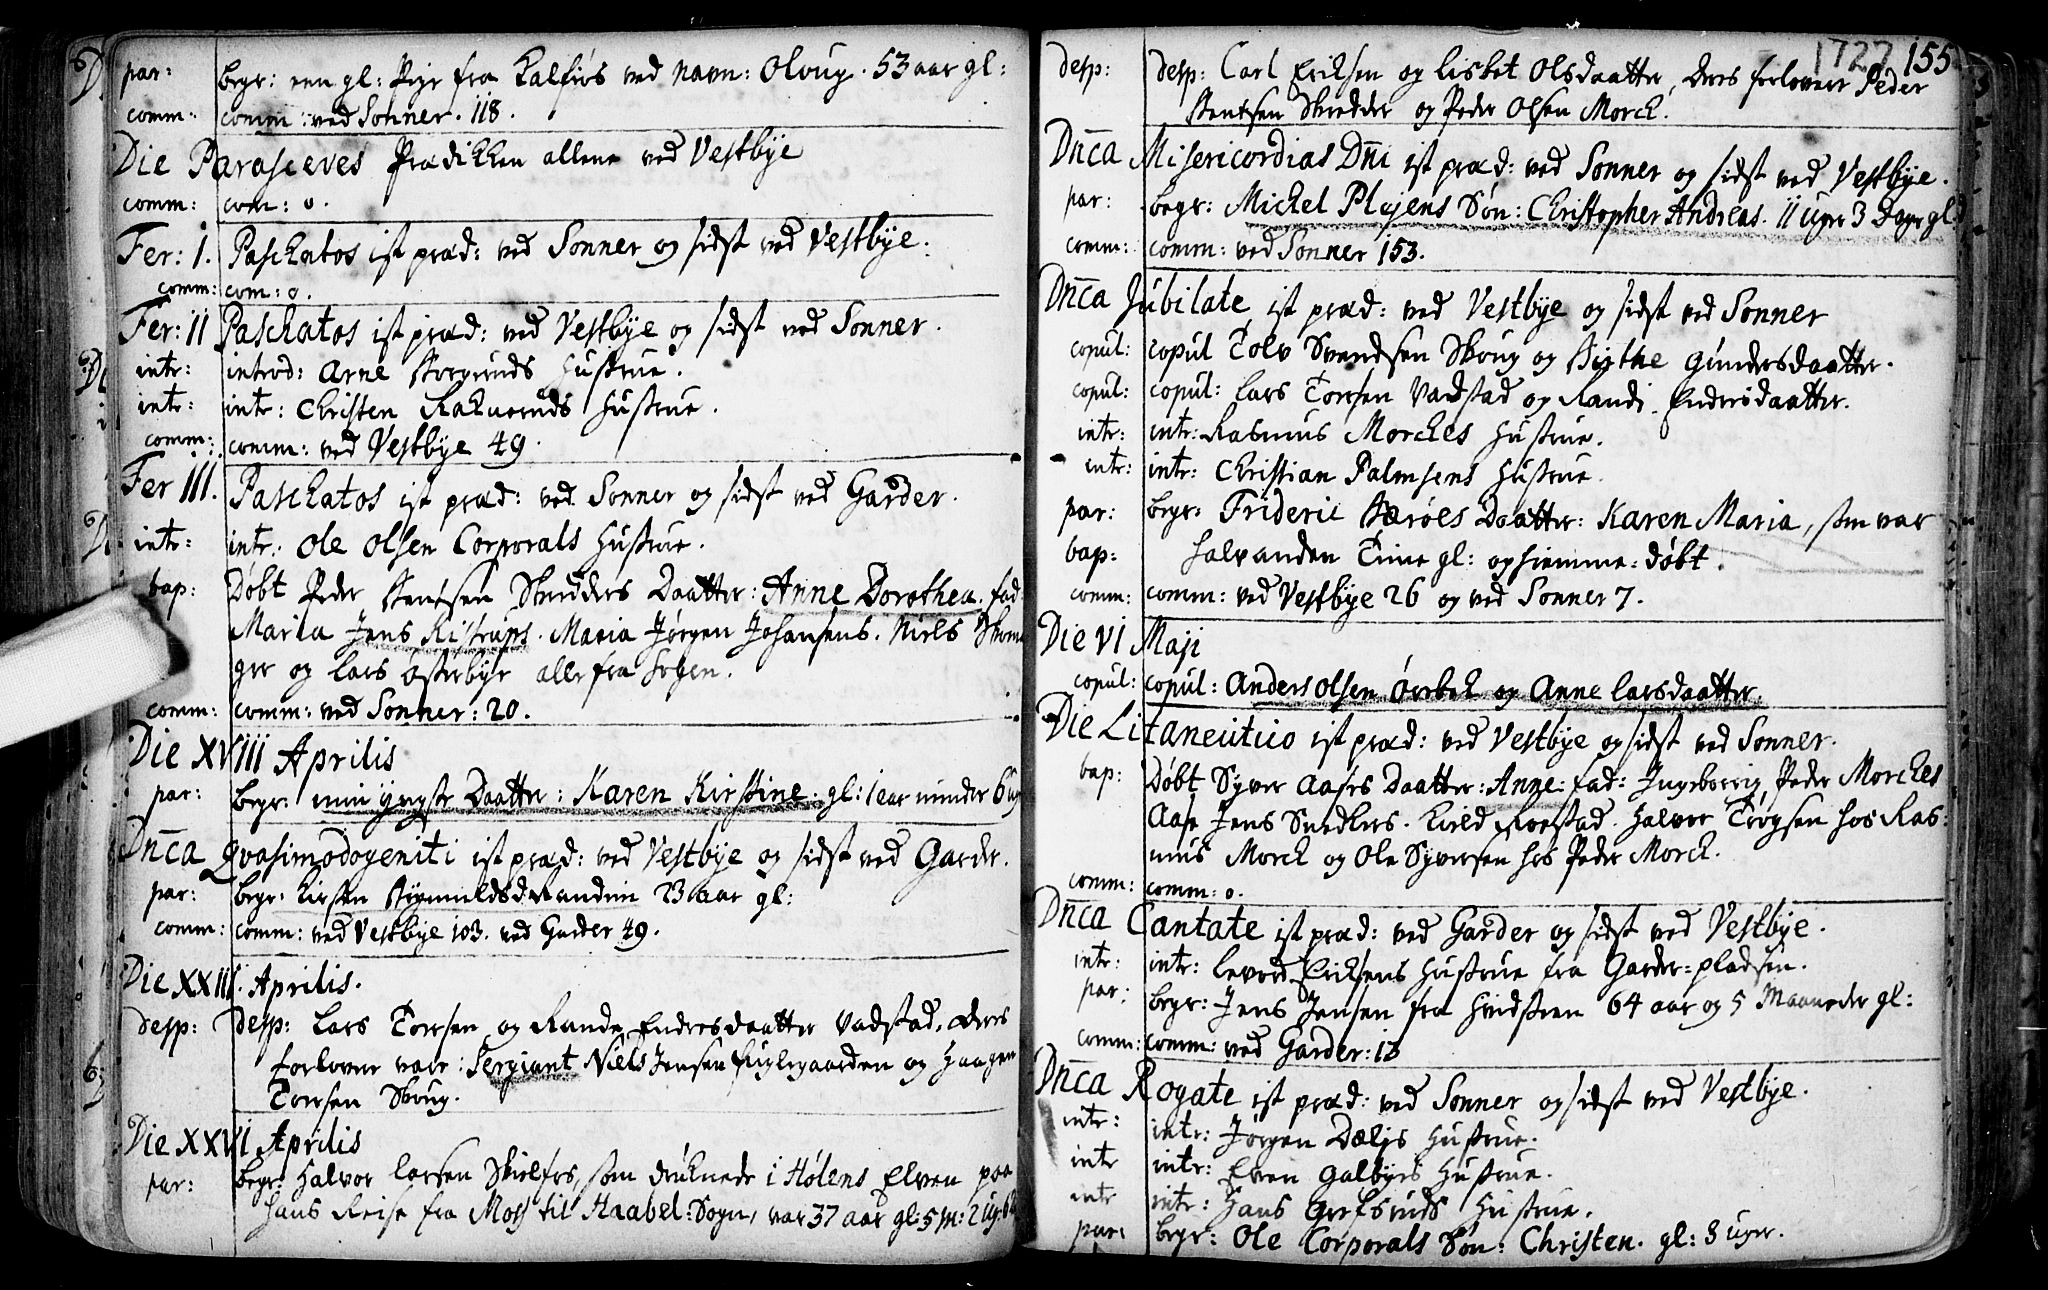 par: begr: een gl: Pige fra Kalfiøs ved navn: Oloug. 53 aar gl:
comm: comm: ved Sonner. 118.
Die Parasceves Prædikken allene ved Vestbÿe
comm: com: 0.
Fer: 1. Paschatos ist præd: ved Sonner og sidst ved Vestbÿe.
comm: com: 0.
Fer: 11 Paschatos ist præd: ved Vestbÿe og sidst ved Sonner.
intr: introd: Arne Borgeruds Hustrue.
intr: intr: Christen Rakneruds Hustrue.
comm: comm: ved Vestbÿe 49.
Fer III. Paschatos ist præd: ved Sonner og sidst ved Garder.
intr: intr: Ole Olsen Corporals Hustrue.
bap: Døbt Peder Bentsen Skredders Daatter: Anne Dorothea. fad:
Maria Jens Ristrups. Maria Jørgen Johansens. Niels Skomæ
ger og Lars Østerbye alle fra Sogen.
comm: comm: ved Sonner: 20.
Die XVIII Aprilis
par: begr: min yngste Daatter: Karen Kirstine. gl: 1 aar minder 6 ug
Dn̄ca Qvasimodogeniti ist præd: ved Vestbÿe og sidst ved Garder.
par: begr: Kirsen 23 aar gl:
comm: comm: ved Vestbÿe 103. ved Garder 49.
Die XXIII. Aprilis.
desp: desp: Lars Torsen og Rande Endresdaatter Vadstad, deres
forlover vare: Sergiant Niels Jensen Fuglegaarden og Haagen
Torsen Skoug.
Die XXVI Aprilis
par: begr: Halvor Larsen Skielfos, som druknede i Hølens Elven paa
hans Reise fra Moss til Haabel: Sogn, var 37 aar gl: 5 m: 2 ug:
1727 155
desp: desp: Carl Eriksen og Lisbet Olsdaatter, deres forlover Peder
Bentsen Skredder og Peder Olsen Morck.
Dn̄ca Misericordias Dn̄i ist præd: ved Sonner og sidst ved Vestbÿe.
par: begr: Michel Plejens Søn: Christopher Andreas. 11 uger 3 Dage gl:
comm: comm: ved Sonner 153.
Dn̄ca Jubilate ist præd: ved Vestbÿe og sidst ved Sonner
copul: copul Tolv Svendsen Skoug og Birthe Gundersdaatter.
copul: copul: Lars Torsen Vadstad og Randi Endersdaatter.
intr: intr: Rasmus Morckes Hustrue.
intr: intr: Christian Palmsens Hustrue.
par: begr: Frideric Bærøes Daatter: Karen Maria, som var
bap: halvanden Time gl: og hiemme-døbt.
comm: comm: ved Vestbÿe 26 og ved Sonner 7.
Die VI Maji
copul: copul: Anders Olsen Örrbek og Anne Larsdaatter.
Die Litaneutico ist præd: ved Vestbÿe og sidst ved Sonner.
bap: Døbt Syver Aases Daatter: Anne. fad: Ingeborrig Peder Morckes
Aase Jens Snedkers. Kield Roestad. Halvor Trogsen hos Ras:
mus Morck og Ole Syversen hos Peder Morck.
comm: comm: 0.
Dn̄ca Cantate ist præd: ved Garder og sidst ved Vestbÿe.
intr: intr: Levord Eriksens Hustrue fra Garder-pladsen.
par: begr: Jens Jensen fra Hvidsteen 64 aar og 5 Maaneder gl:
comm: comm: ved Garder: 13
Dn̄ca Rogate ist præd: ved Sonner og sidst ved Vestbÿe.
intr: intr: Jørgen Dælis Hustrue.
intr intr: Even Galbyes Hustrue.
intr intr: Hans Grefsruds Hustrue.
par: begr: Ole Corporals Søn: Christen. gl: 3 uger.